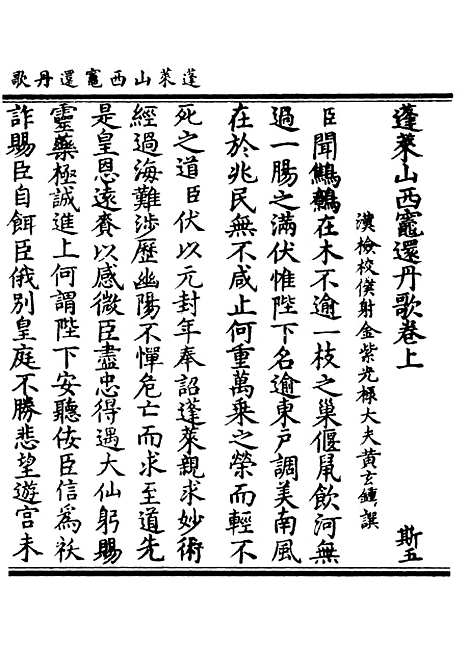 蓬萊山西竈還丹歌
蓬萊山西竈還丹歌卷上　斯五
漢檢校僕射金紫光祿大夫黃玄鍾譔
臣聞鷦鷯在木不逾一枝之巢偃鼠飲河無
過一腸之滿伏惟陛下名逾東戶調美南風
在於兆民無不咸止何重萬乘之榮而輕不
死之道臣伏以元封年奉詔蓬萊親求妙術
經過海難涉歷幽陽不憚危亡而求至道先
是皇恩遠賚以感微臣盡忠得遇大仙躬賜
靈藥極誠進上何謂陛下安聽佞臣信為祅
詐賜臣自餌臣俄別皇庭不勝悲望遊宮未